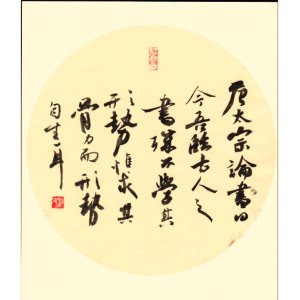 唐太宗論書曰
今吾臨古人之
書殊不學其
形勢惟求其
骨力而形勢
自生耳